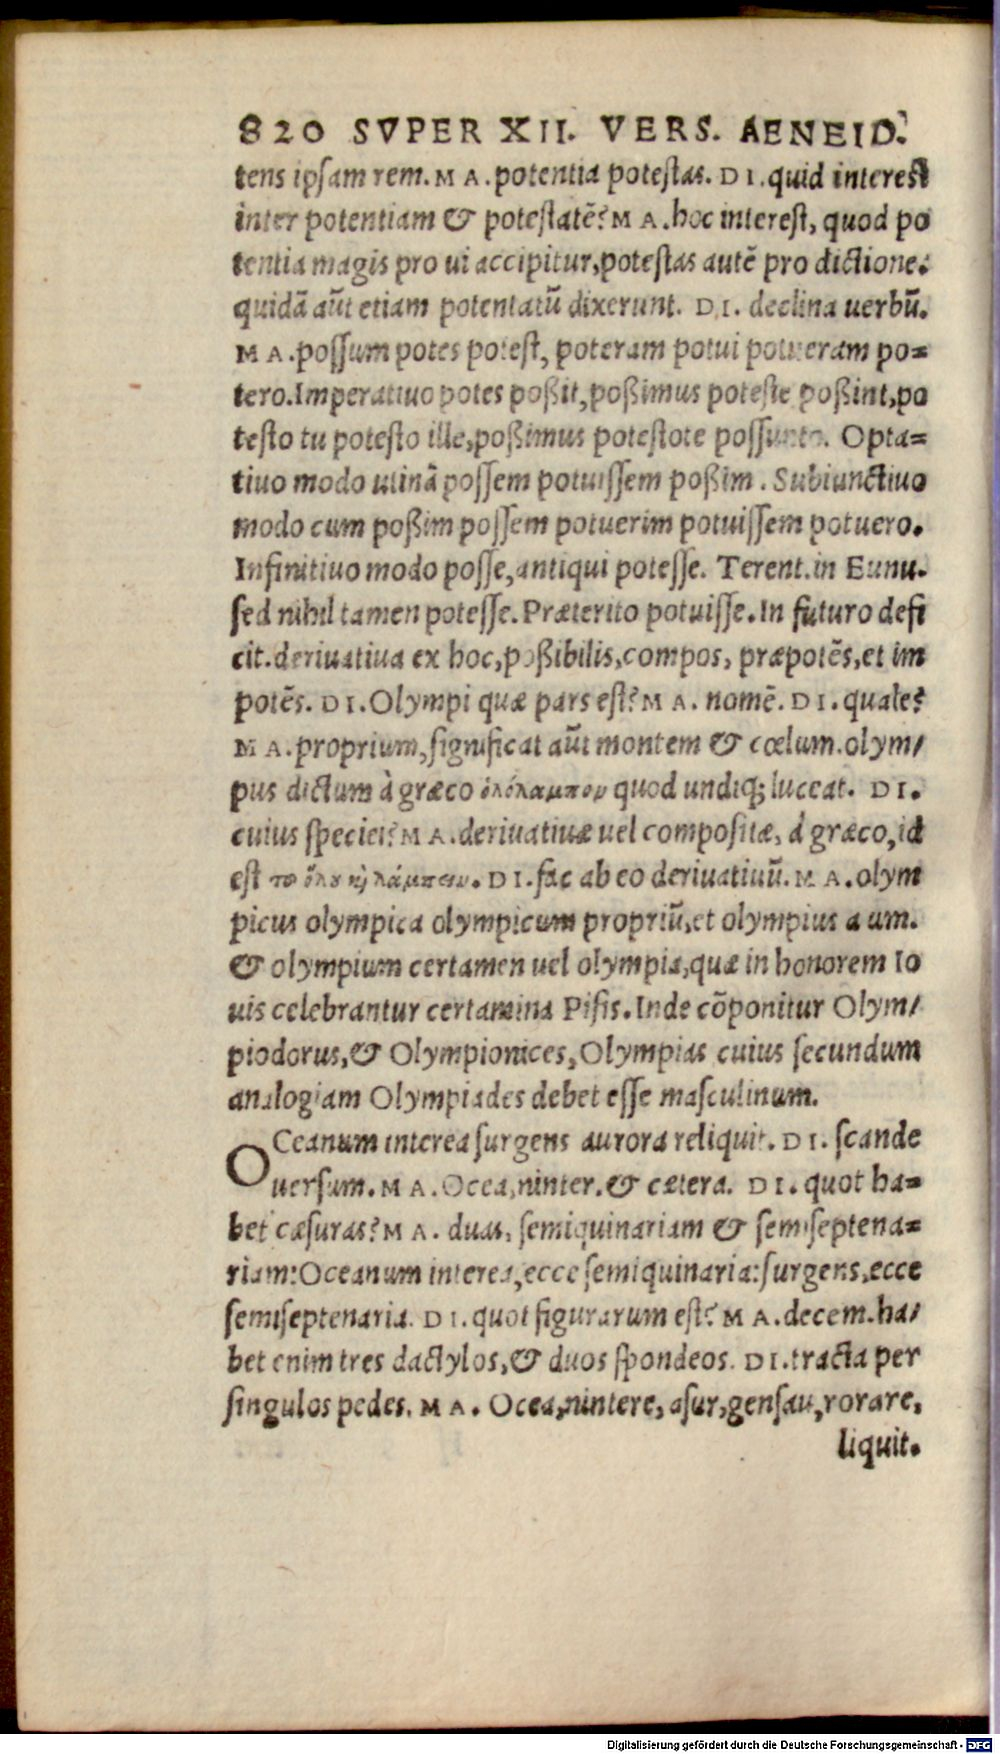 820 SVPER XII. VERS. AENEID.
tens ipsam rem. MA. potentia potestas. DI. quid interest
inter potentiam & potestatē? MA. hoc interest, quod po
tentia magis pro ui accipitur, potestas autē pro dictione:
quidā aūt etiam potentatū dixerunt. DI. declina uerbū.
MA. possum potes potest, poteram potui potueram po=
tero. Imperatiuo potes poßit, poßimus poteste poßint, po
testo tu potesto ille, poßimus potestote possunto. Opta=
tiuo modo utinā possem potuissem poßim. Subiunctiuo
modo cum poßim possem potuerim potuissem potuero.
Infinitiuo modo posse, antiqui potesse. Terent. in Eunu.
sed nihil tamen potesse. Præterito potuisse. In futuro defi
cit. deriuatiua ex hoc, poßibilis, compos, præpotēs, et im
potēs. DI. Olympi quæ pars est? MA. nomē. DI. quale?
MA. proprium, significat aūt montem & cœlum. olym/
pus dictum à græco ὁλόλαμπον quod undiq; luceat. DI.
cuius speciei? MA. deriuatiuæ uel compositæ, à græco, id
est τοῦ ὅλου κὴ λάμπειν. DI. fac ab eo deriuatiuū. MA. olym
picus olympica olympicum propriū, et olympius a um.
& olympium certamen uel olympia, quæ in honorem Io
uis celebrantur certamina Pisis. Inde cōponitur Olym/
piodorus, & Olympionices, Olympias cuius secundum
analogiam Olympiades debet esse masculinum.
OCeanum interea surgens aurora reliquit. DI. scande
uersum. MA. Ocea, ninter. & cætera. DI. quot ha=
bet cæsuras? MA. duas, semiquinariam & semiseptena=
riam: Oceanum interea, ecce semiquinaria: surgens, ecce
semiseptenaria. DI. quot figurarum est? MA. decem. ha/
bet enim tres dactylos, & duos spondeos. DI. tracta per
singulos pedes. MA. Ocea, nintere, asur, gensau, rorare,
liquit.
Digitalisierung gefördert durch die Deutsche Forschungsgemeinschaft - DFG